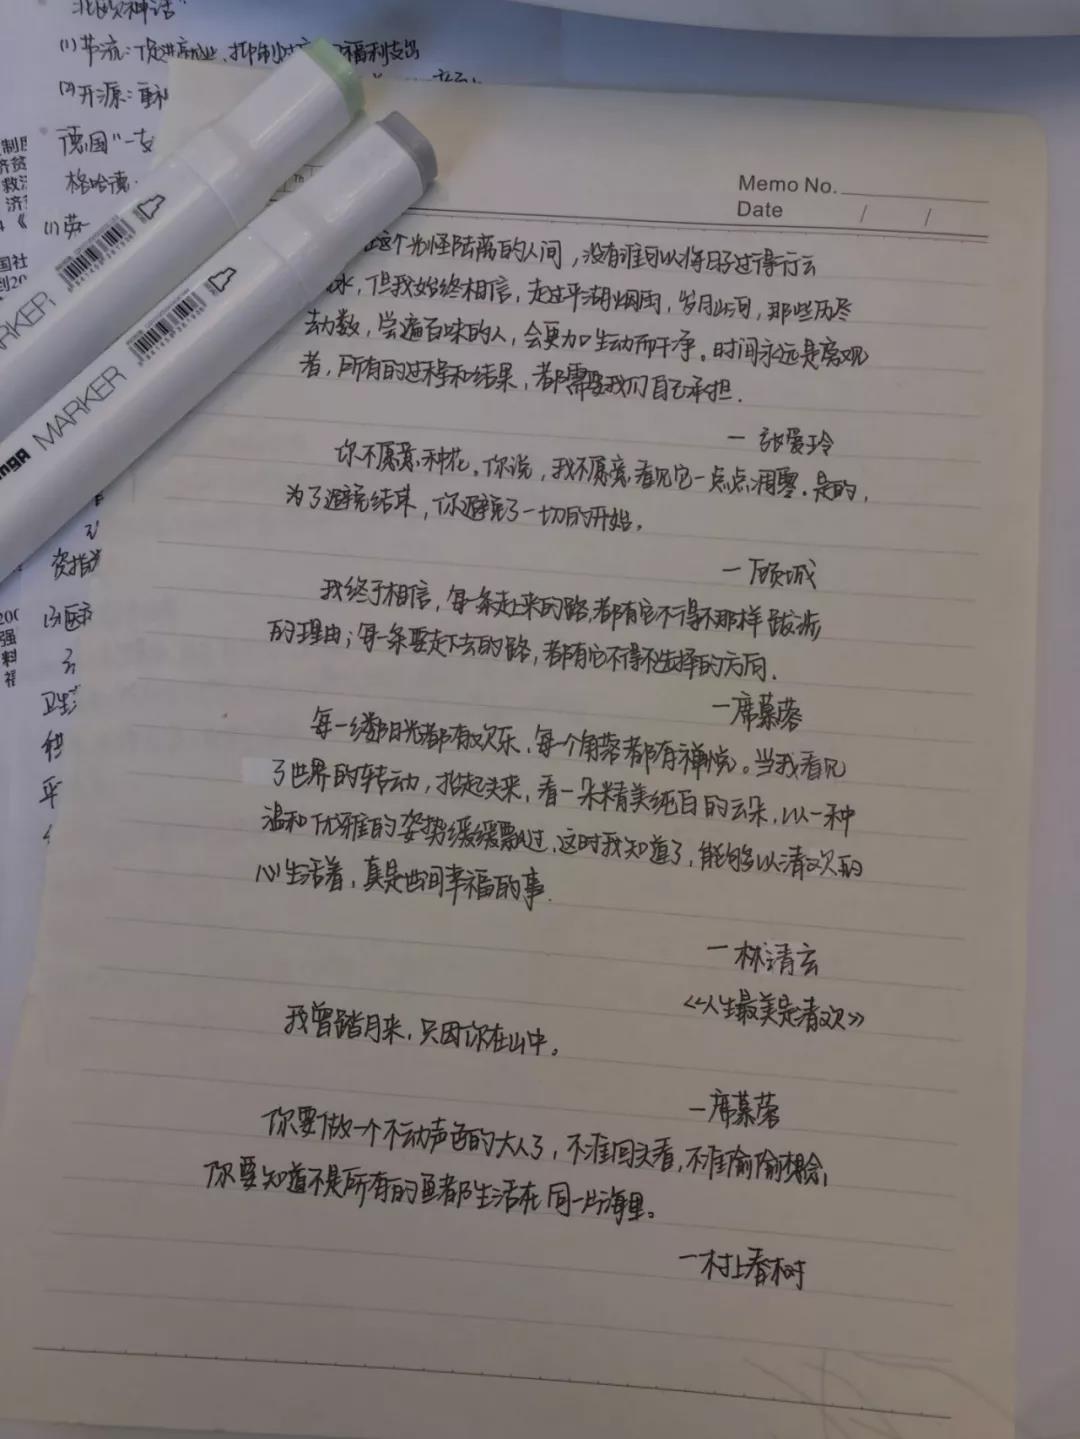 北欧神话"
(1)节流:促进就业、抑制 福利支出
(2)开源:重
德国"一
格哈德
(1)英
MARKER
MARKER
Memo No.
Date / /
这个光怪陆离的人间，没有谁可以将日子过得行云
水，但我始终相信，走过平湖烟雨，岁月山河，那些历尽
劫数，尝遍百味的人，会更加生动而干净。时间永远是旁观
者，所有的过程和结果，都需要我们自己承担.
一 张爱玲
你不愿意种花。你说，我不愿意看见它一点点凋零。是的，
为了避免结束，你避免了一切的开始。
一顾城
我终于相信，每一条走上来的路，都有它不得不那样跋涉
的理由；每一条要走下去的路，都有它不得不选择的方向.
一席慕蓉
每一缕阳光都有欢乐，每个角落都有禅悦。当我看见
了世界的转动，抬起头来，看一朵精美纯白的云朵，以一种
温和优雅的姿势缓缓飘过，这时我知道了，能够以清欢的
心生活着，真是世间幸福的事.
一林清玄
《人生最美是清欢》
我曾踏月来，只因你在山中。
一席慕蓉
你要做一个不动声色的大人了，不准回头看，不准偷偷想念，
你要知道不是所有的鱼都生活在同一片海里。
一村上春树